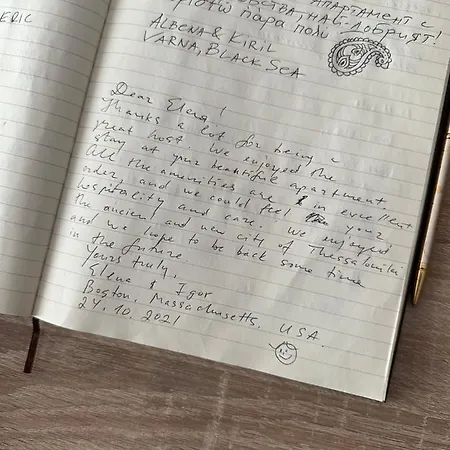 ERIC
АПАРТАМЕНТ С
НАЙ-ДОБРИЯТ!
ALBENA & KIRIL
VARNA, BLACK SEA
Dear Elena!
Thanks a lot for being a
great host. We enjoyed the
stay at your beautiful apartment
All the amenities are in excellent
order and we could feel your
hospitality and care. We enjoyed
the ancient and new city of Thessaloniki
and we hope to be back some time
in the future
Yours truly,
Elena & Igor
Boston, Massachusetts, USA.
24.10.2021